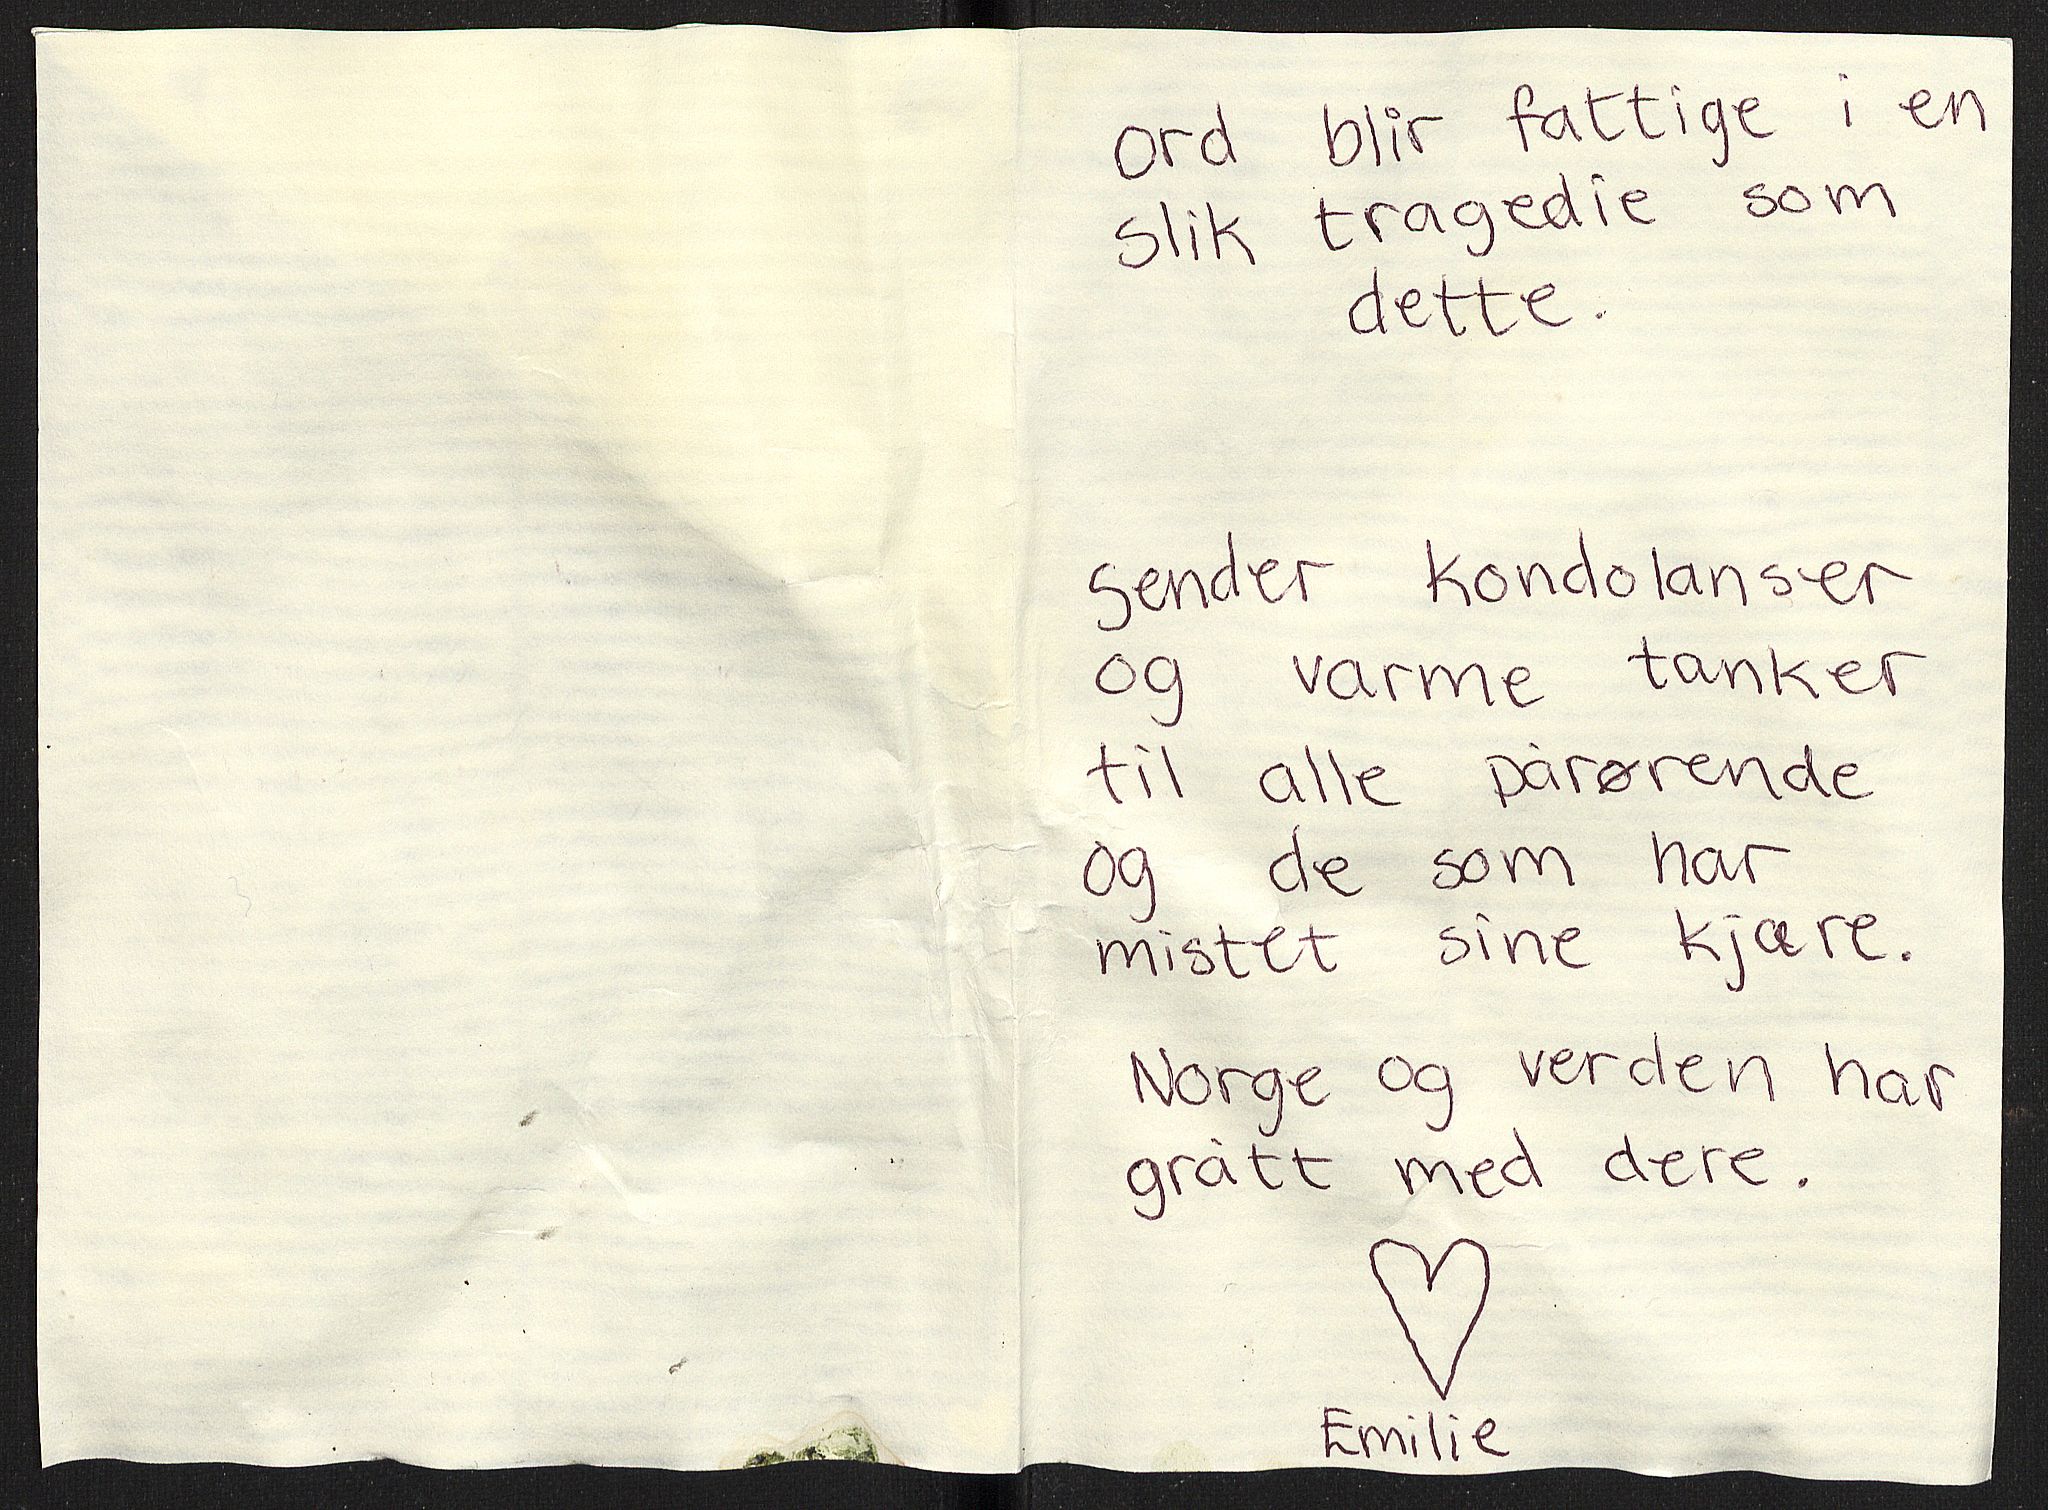 Ord blir fattige i en
slik tragedie som
dette.
Sender kondolanser
og varme tanker
til alle pårørende
og de som har
mistet sine kjære.
Norge og verden har
grått med dere.
Emilie